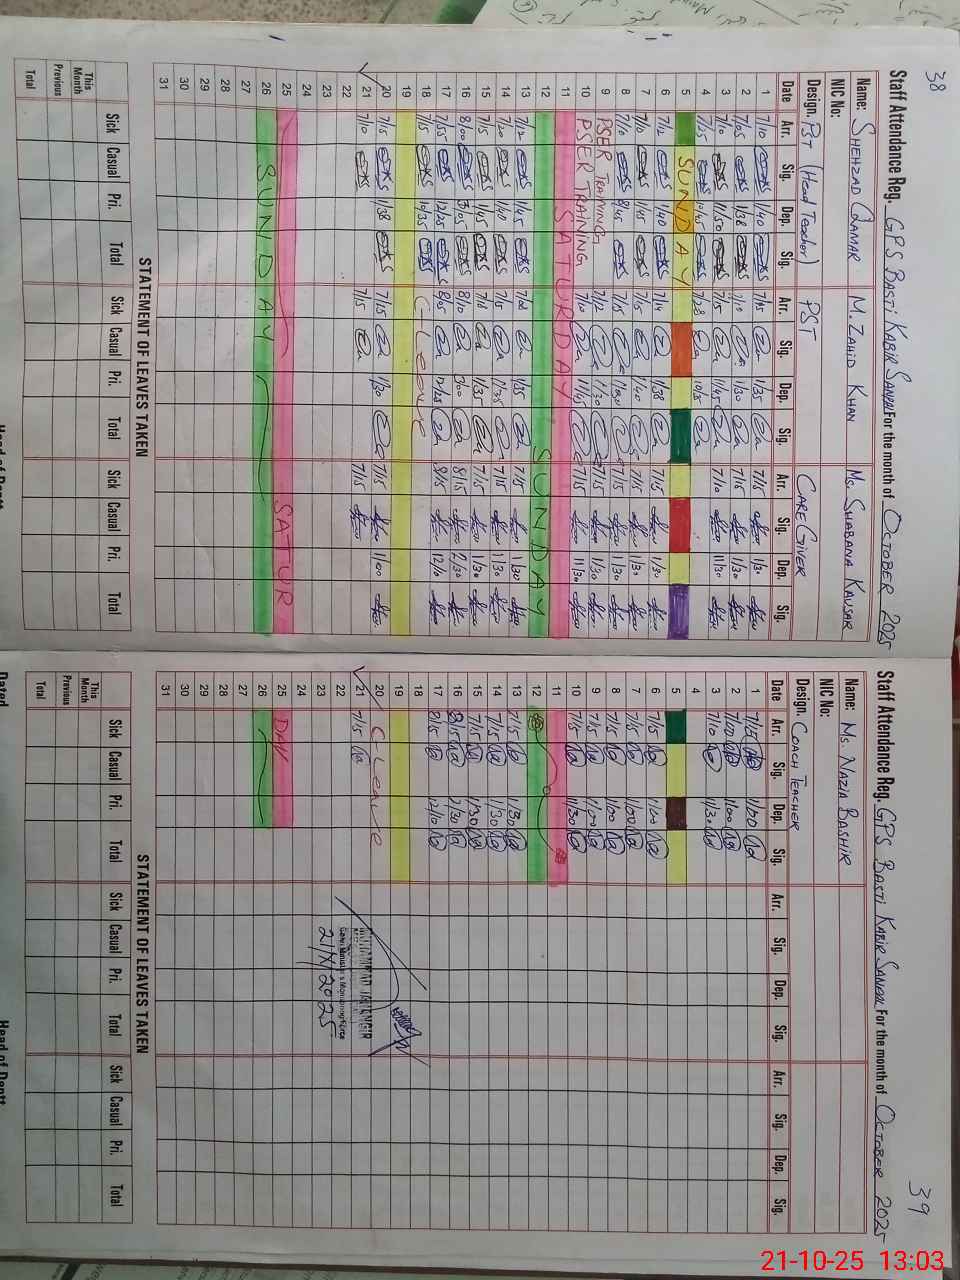 38
Staff Attendance Reg. GPS BASTI KABIR SANPAL For the month of OCTOBER 2025
Name: SHEHZAD QAMAR M. ZAHID KHAN Ms. SHABANA KAUSAR
NIC No:
Design. PST (Head Teacher) PST CARE GIVER
Date Arr. Sig. Dep. Sig. Arr. Sig. Dep. Sig. Arr. Sig. Dep. Sig.
1 7/10 1/40 7/15 1/35 7/15 1/30
2 7/05 1/38 7/10 1/30 7/15 1/30
3 7/10 11/50 7/15 11/45 7/10 11/30
4 7/25 10/45 7/28 10/15
5 SUNDAY
6 7/12 1/40 7/11 1/38 7/15 1/30
7 7/10 1/45 7/15 1/40 7/15 1/30
8 7/10 8/45 7/15 1/30 7/15 1/30
9 PSER TRAINING 7/12 1/30 7/15 1/30
10 PSER TRAINING 7/10 11/45 7/15 11/30
11 SATURDAY
12 SUNDAY
13 7/12 1/45 7/12 1/35 7/15 1/30
14 7/20 1/40 7/15 1/35 7/15 1/30
15 7/15 1/45 7/11 1/35 7/15 1/30
16 8/00 3/05 8/10 3/00 8/15 2/30
17 7/55 12/25 8/05 12/25 8/15 12/10
18 7/15 10/35 C-Leave
19
20 7/15 1/38 7/15 1/30 7/15 1/00
21 7/10 7/15 7/15
22
23
24
25 SATUR
26 SUNDAY
27
28
29
30
31
STATEMENT OF LEAVES TAKEN
Sick Casual Pri. Total Sick Casual Pri. Total Sick Casual Pri. Total
This Month
Previous
Total
39
Staff Attendance Reg. GPS BASTI KABIR SANPAL For the month of OCTOBER 2025
Name: Ms. NAZIA BASHIR
NIC No:
Design. COACH TEACHER
Date Arr. Sig. Dep. Sig. Arr. Sig. Dep. Sig. Arr. Sig. Dep. Sig.
1 7/15 1/00
2 7/20 1/00
3 7/10 11/30
4
5
6 7/15 1/00
7 7/15 1/00
8 7/15 1/00
9 7/15 1/00
10 7/15 11/30
11
12
13 7/15 1/30
14 7/15 1/30
15 7/15 1/30
16 8/15 2/30
17 8/15 12/10
18
19
20 C-Leave
21 7/15
22
23
24
25 DAY
26
27
28
29
30
31
MUHAMMAD JAHANGIR
Chief Minister's Monitoring Force
21/X/2025
STATEMENT OF LEAVES TAKEN
Sick Casual Pri. Total Sick Casual Pri. Total Sick Casual Pri. Total
This Month
Previous
Total
Dated
Head of Deptt
21-10-25 13:03